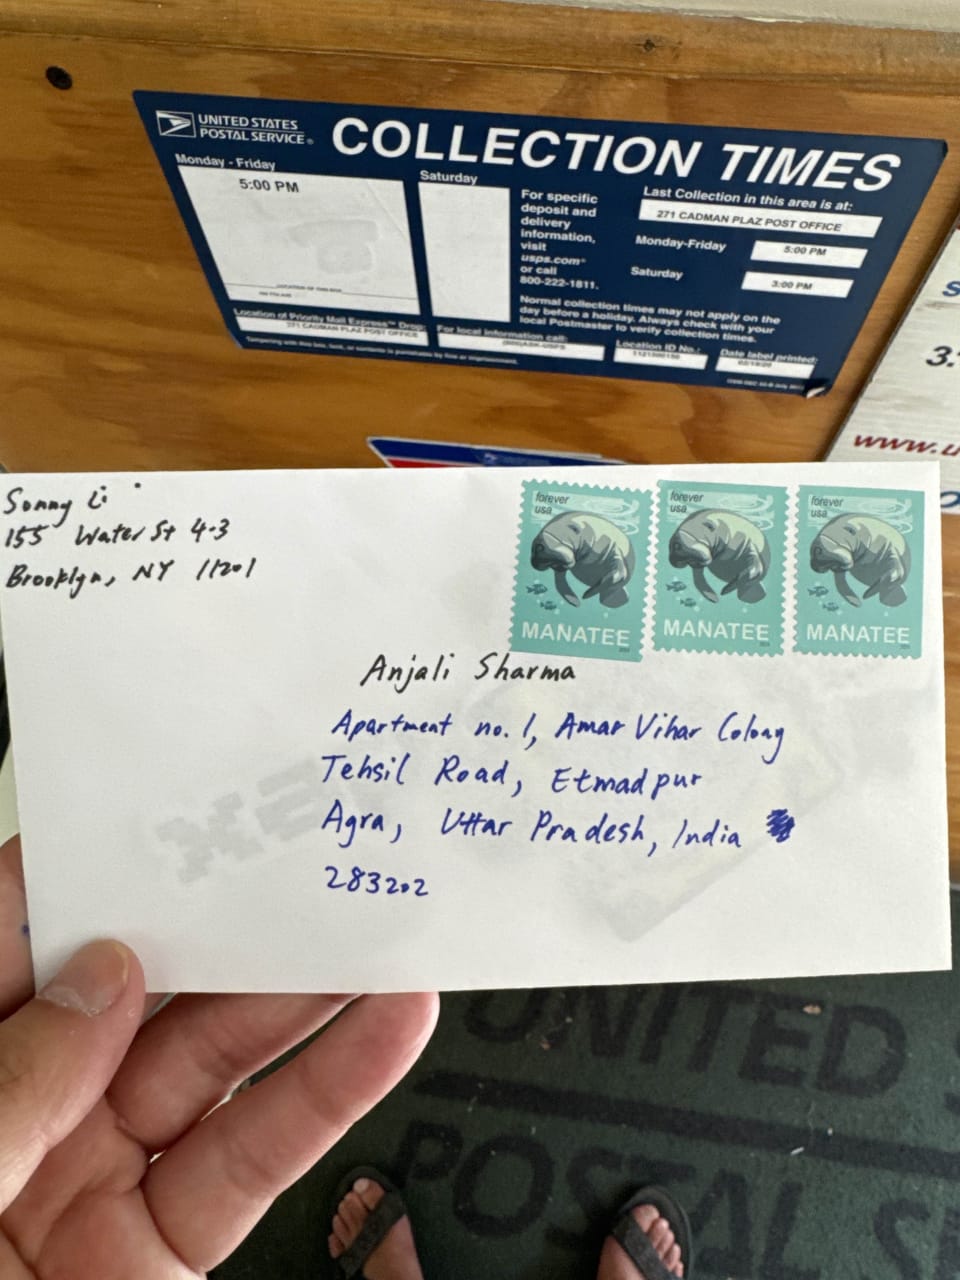 UNITED STATES
POSTAL SERVICE®
COLLECTION TIMES
Monday - Friday
5:00 PM
Saturday
For specific
deposit and
delivery
information,
visit
usps.com®
or call
800-222-1811.
Last Collection in this area is at:
271 CADMAN PLAZ POST OFFICE
Monday-Friday
5:00 PM
Saturday
3:00 PM
Normal collection times may not apply on the
day before a holiday. Always check with your
local Postmaster to verify collection times.
LOCATION OF THIS BOX
Location of Priority Mail Express™ Drop:
271 CADMAN PLAZ POST OFFICE
For local information call:
(800)ASK-USPS
Location ID No.:
Date label printed:
Tampering with this box, lock, or contents is punishable by fine or imprisonment.
S
3.
www.u
Sonny Li
155 Water St 4-3
Brooklyn, NY 11201
forever
usa
MANATEE
forever
usa
MANATEE
forever
usa
MANATEE
Anjali Sharma
Apartment no. 1, Amar Vihar Colony
Tehsil Road, Etmadpur
Agra, Uttar Pradesh, India
283202
UNITED S
POSTAL SE